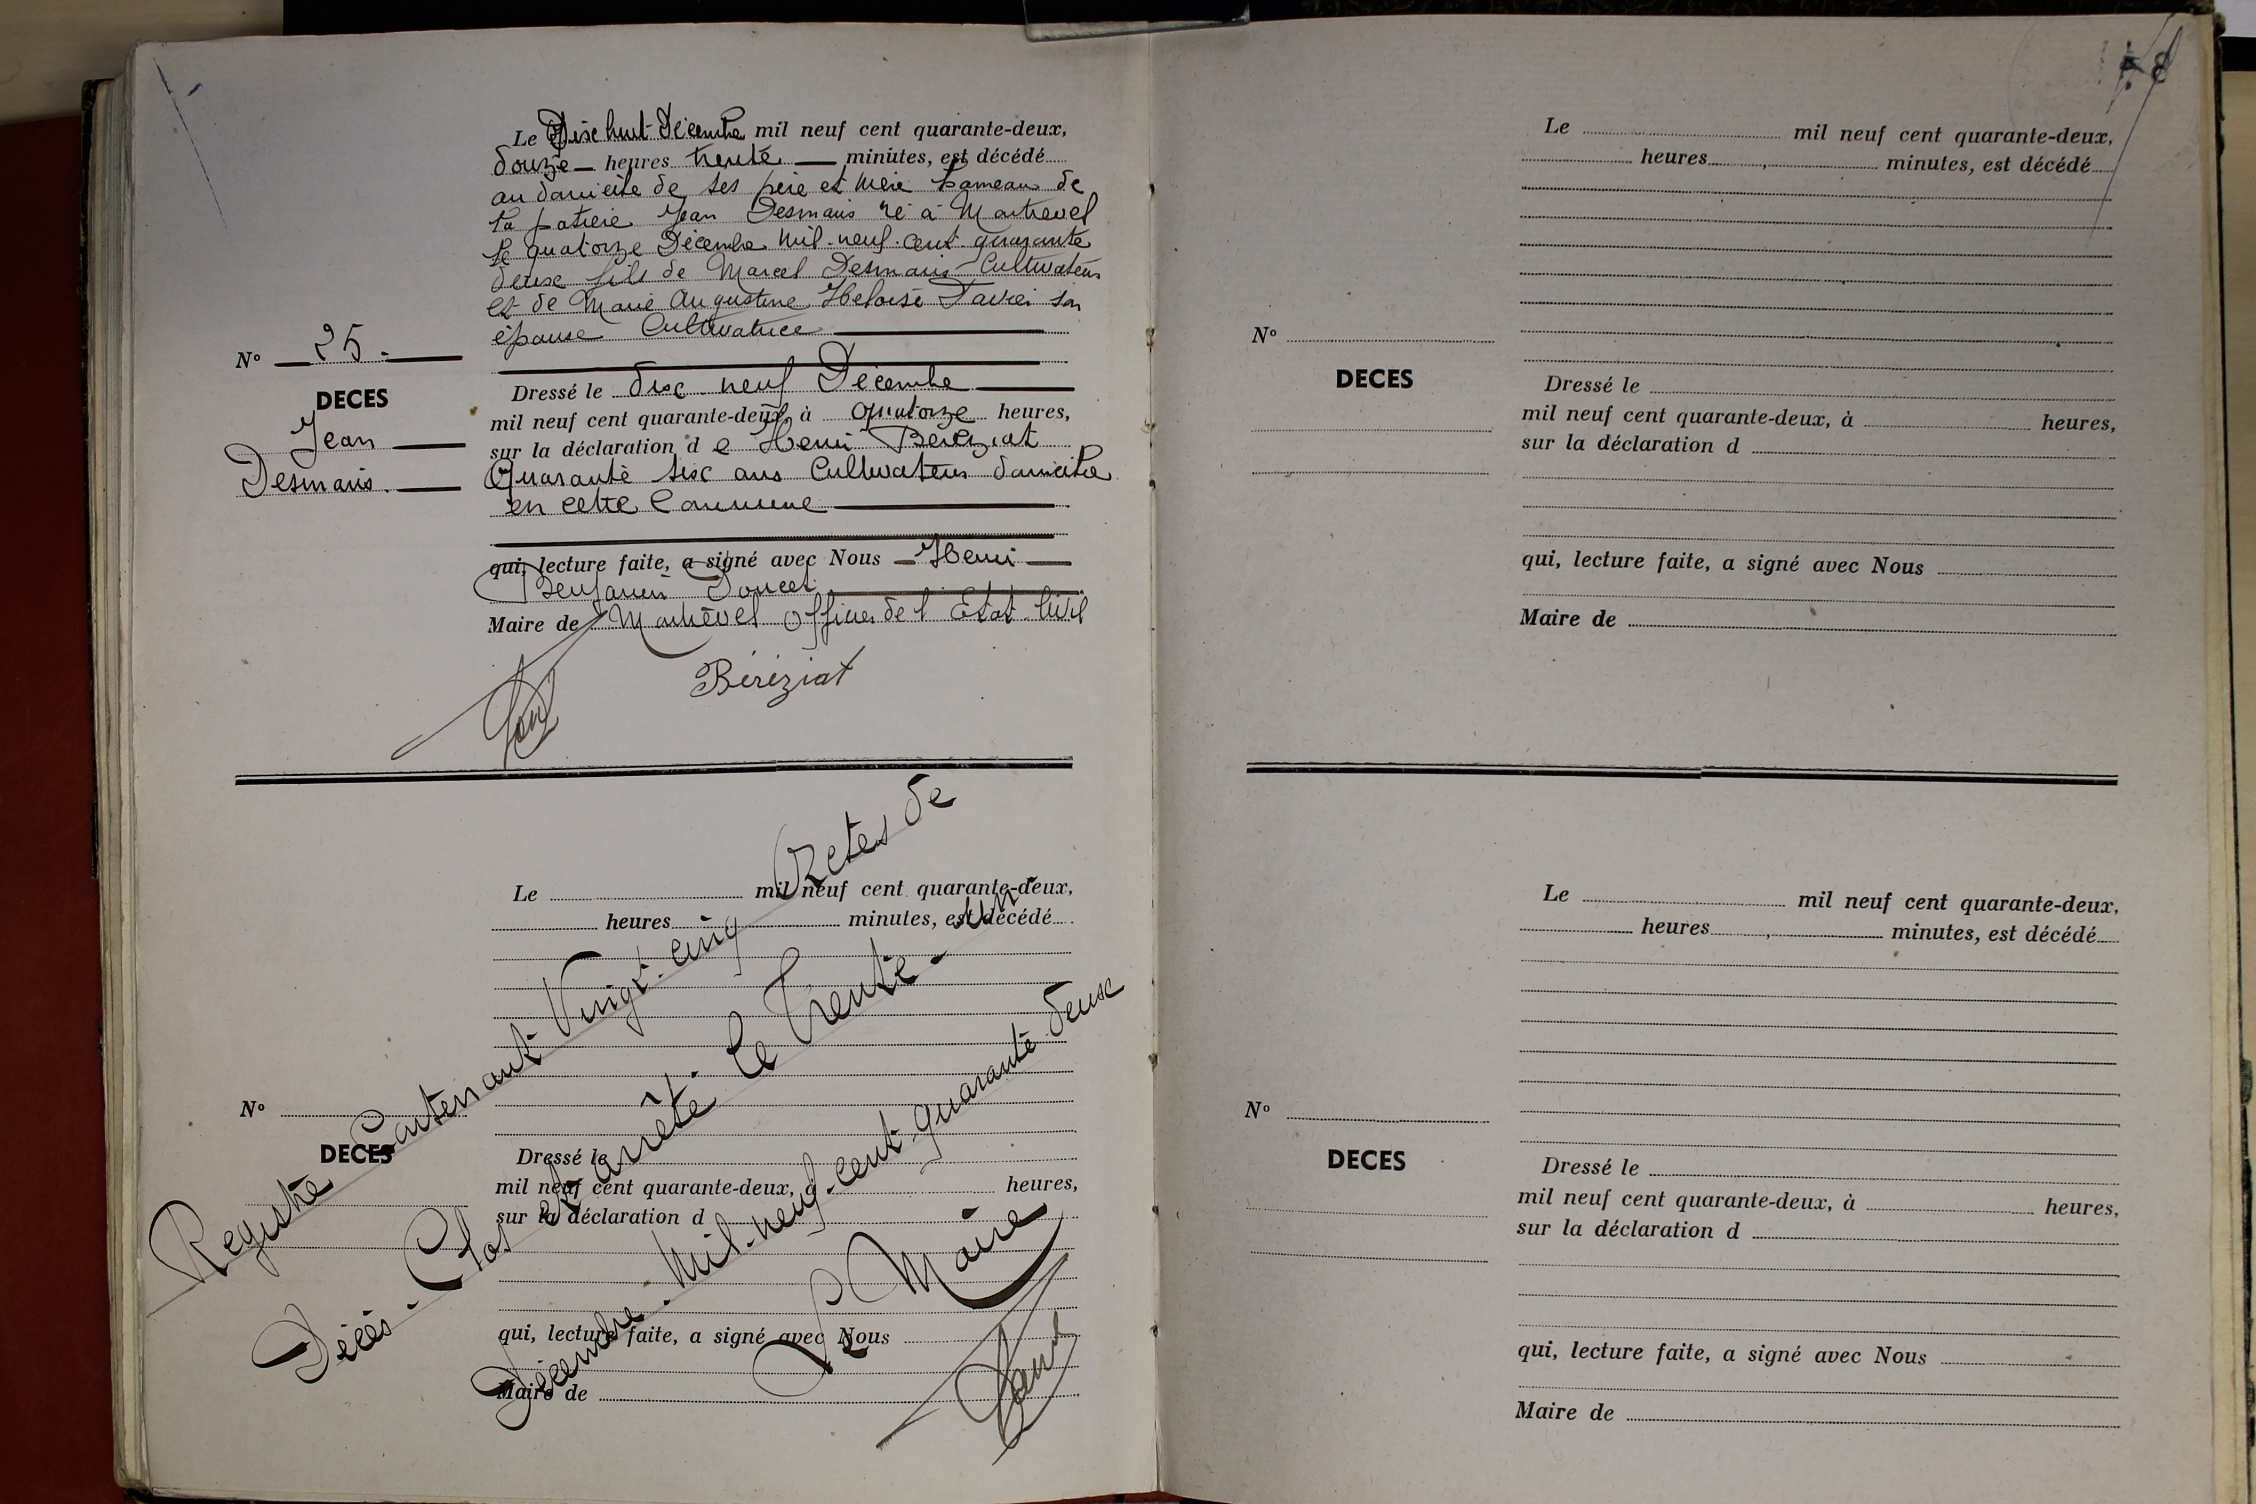 Le Dix huit Décembre mil neuf cent quarante-deux,
douze heures trente minutes, est décédé
au domicile de ses père et mère hameau de
la Jean Desmaris né à Montrevel
le quatorze Décembre mil-neuf-cent quarante
deux fils de Marcel Desmaris Cultivateur
et de Marie Augustine Héloïse son
épouse Cultivatrice
N° 25.
DECES
Jean
Desmaris.
Dressé le dix neuf Décembre
mil neuf cent quarante-deux, à quatorze heures,
sur la déclaration d e Henri Béréziat
Quarante six ans Cultivateur domicilié
en cette Commune
qui, lecture faite, a signé avec Nous Henri
Benjamin Doucet
Maire de Montrevel Officier de l'Etat Civil
Béréziat
Le mil neuf cent quarante-deux,
heures minutes, est décédé
N°
DECES
Dressé le
mil neuf cent quarante-deux, à heures,
sur la déclaration d
qui, lecture faite, a signé avec Nous
Maire de
Registre Contenant Vingt-cinq Actes de
Décès - Clos et arrêté - le trente - un
Décembre - mil-neuf-cent quarante deux
Le Maire
48
Le mil neuf cent quarante-deux,
heures minutes, est décédé
N°
DECES
Dressé le
mil neuf cent quarante-deux, à heures,
sur la déclaration d
qui, lecture faite, a signé avec Nous
Maire de
Le mil neuf cent quarante-deux,
heures minutes, est décédé
N°
DECES
Dressé le
mil neuf cent quarante-deux, à heures,
sur la déclaration d
qui, lecture faite, a signé avec Nous
Maire de